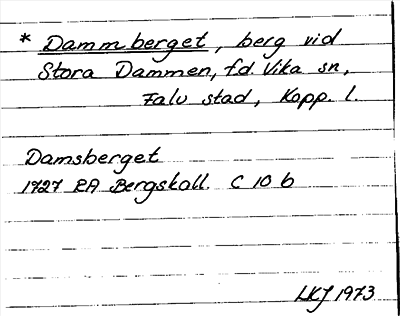 * Dammberget, berg vid
Stora Dammen, f.d. Vika sn,
Falu stad, Kopp. l.
Damsberget
1727 RA Bergskoll. C 10 b
LKJ 1973